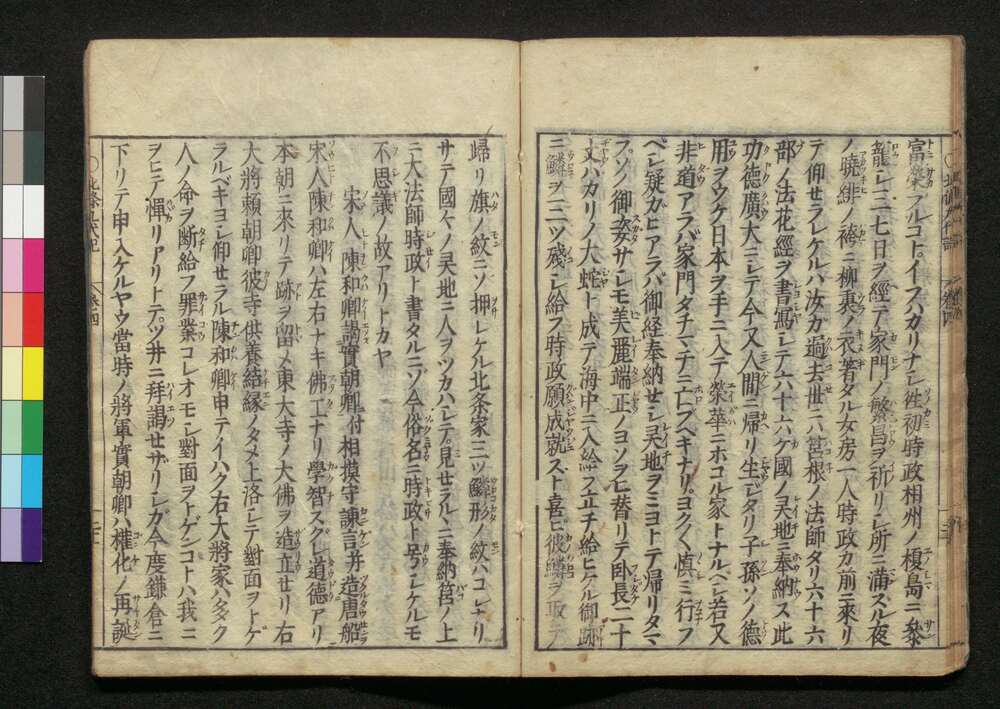 富榮フルコト。イフハカリナシ往初時政相州ノ榎島ニ參
龍シ三七日ヲ經テ家門ノ繁昌ヲ祈リシ所ニ滿スル夜
ノ曉緋ノ袴ニ柳裏ノ衣著タル女房一人時政カ前ニ來リ
テ仰セラレケルハ汝カ過去世ニハ筥根ノ法師タリ六十六
部ノ法花經ヲ書寫シテ六十六ケ國ノ灵地ニ奉納ス此
功德廣大ニシテ今又人間ニ歸リ生レタリ子孫ソノ德
用ヲウケ日本ヲ手ニ入テ榮華ニホコル家トナルヘシ若又
非道アラバ家門タチマチニ亡フヘキナリ。ヨクく慎ミ行フ
ベシ疑カヒアラバ御経奉納セシ灵地ヲミヨトテ帰リタマ
フソノ御姿サシモ美麗端正ノヨソヲヒ替リテ臥長二十
丈ハカリノ大蛇ト成テ海中ニ入給フ立チ給ヒケル御跡
ニ鱗ヲ三ツ殘シ給フ時政願成就スト喜ビ彼鱗ヲ取テ
歸リ旗ノ紋ニソ押レケル北条家三ツ鱗形ノ紋ハコレナリ
サテ國ケノ灵地ニ人ヲツカハシテ。見セラルニ奉納筥ノ上
ニ大法師時政ト書タルニゾ今俗名ニ時政ト号シケルモ
不思議ノ故アリトカヤ
宋人陳和卿謁實朝卿付相摸守諫言并造唐船
宋人陳和卿ハ左右ナキ佛工ナリ學智スグレ道德アリ
本朝ニ來リテ跡ヲ留メ東大寺ノ大佛ヲ造立セリ右
大將賴朝卿彼寺供養結縁ノタメ上洛シテ對面ヲトゲ
ラルベキヨシ仰セラル陳和卿申テイハク右大將家ハタク
人ノ命ヲ断給フ罪業コレオモシ對面ヲトゲンコトハ我ニヲ
ヒテ憚リアリトテ。ツ井ニ拜謁セザリシガ今度鎌倉ニ
下リテ申入ケルヤウ當時ノ將軍實朝卿ハ權化ノ再誕